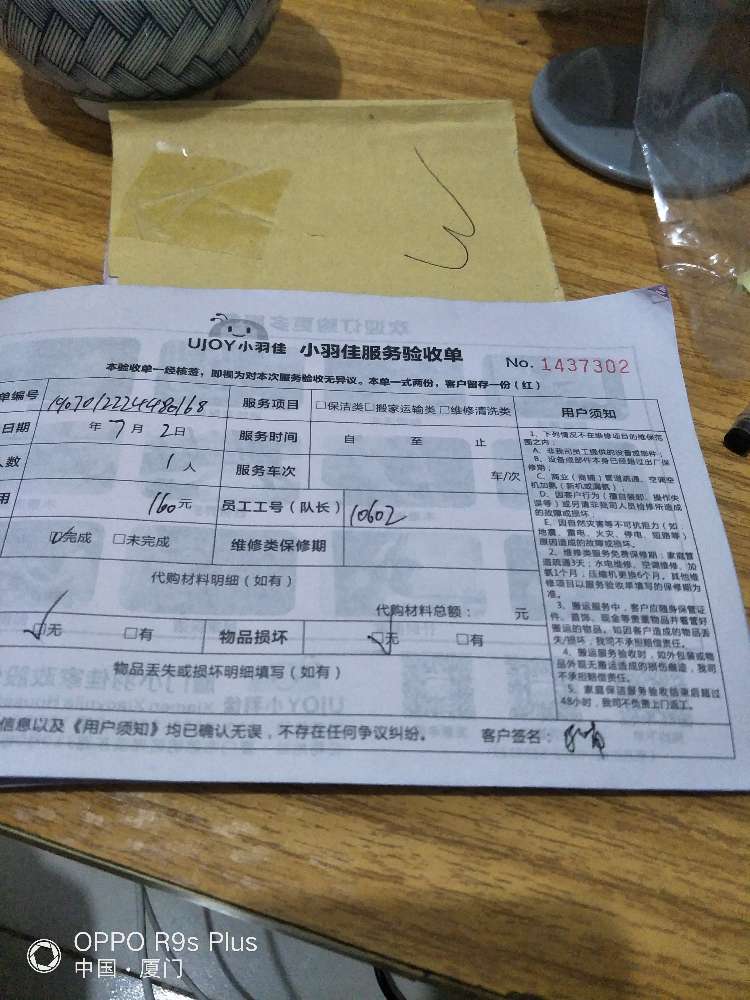 UJOY小羽佳 小羽佳服务验收单 No. 1437302
本验收单一经核签，即视为对本次服务验收无异议。本单一式两份，客户留存一份（红）
单编号 服务项目 □保洁类□搬家运输类□维修清洗类
日期 年 7 月 2 日 服务时间 自 至 止
人数 1 人 服务车次 车/次
用 160 元 员工工号（队长） 10602
☑完成 □未完成 维修类保修期
代购材料明细（如有）
代购材料总额： 元
☑无 □有 物品损坏 ☑无 □有
物品丢失或损坏明细填写（如有）
信息以及《用户须知》均已确认无误，不存在任何争议纠纷。 客户签名：
用户须知
1、下列情况不在维修项目的维保范
围之内：
A、非我司员工提供的设备或物件；
B、设备或部件本身已经超过出厂保
修期；
C、商业（商铺）管道疏通、空调空
机加氨（新机或漏氨）
D、因客户行为（擅自装卸、操作失
误等）或另请非我司人员检修所造成
的故障或损坏；
E、因自然灾害等不可抗阻力（如
地震、雷电、火灾、停电、短路等）
原因造成的故障或损坏。
2、维修类服务免费保修期：家庭管
道疏通3天；水电维修、空调维修、加
氨1个月；压缩机更换6个月。其他维
修项目以服务验收单填写的保修期为
准。
3、搬运服务中，客户应随身保管证
件、首饰、现金等贵重物品并看管好
搬运的物品。如因客户造成的物品丢
失/损坏，我司不承担赔偿责任。
4、搬运服务验收时，如外包装或物
品外观无搬运造成的损伤痕迹，我司
不承担赔偿责任。
5、家庭保洁服务验收结束后超过
48小时，我司不负责上门返工。
OPPO R9s Plus
中国·厦门